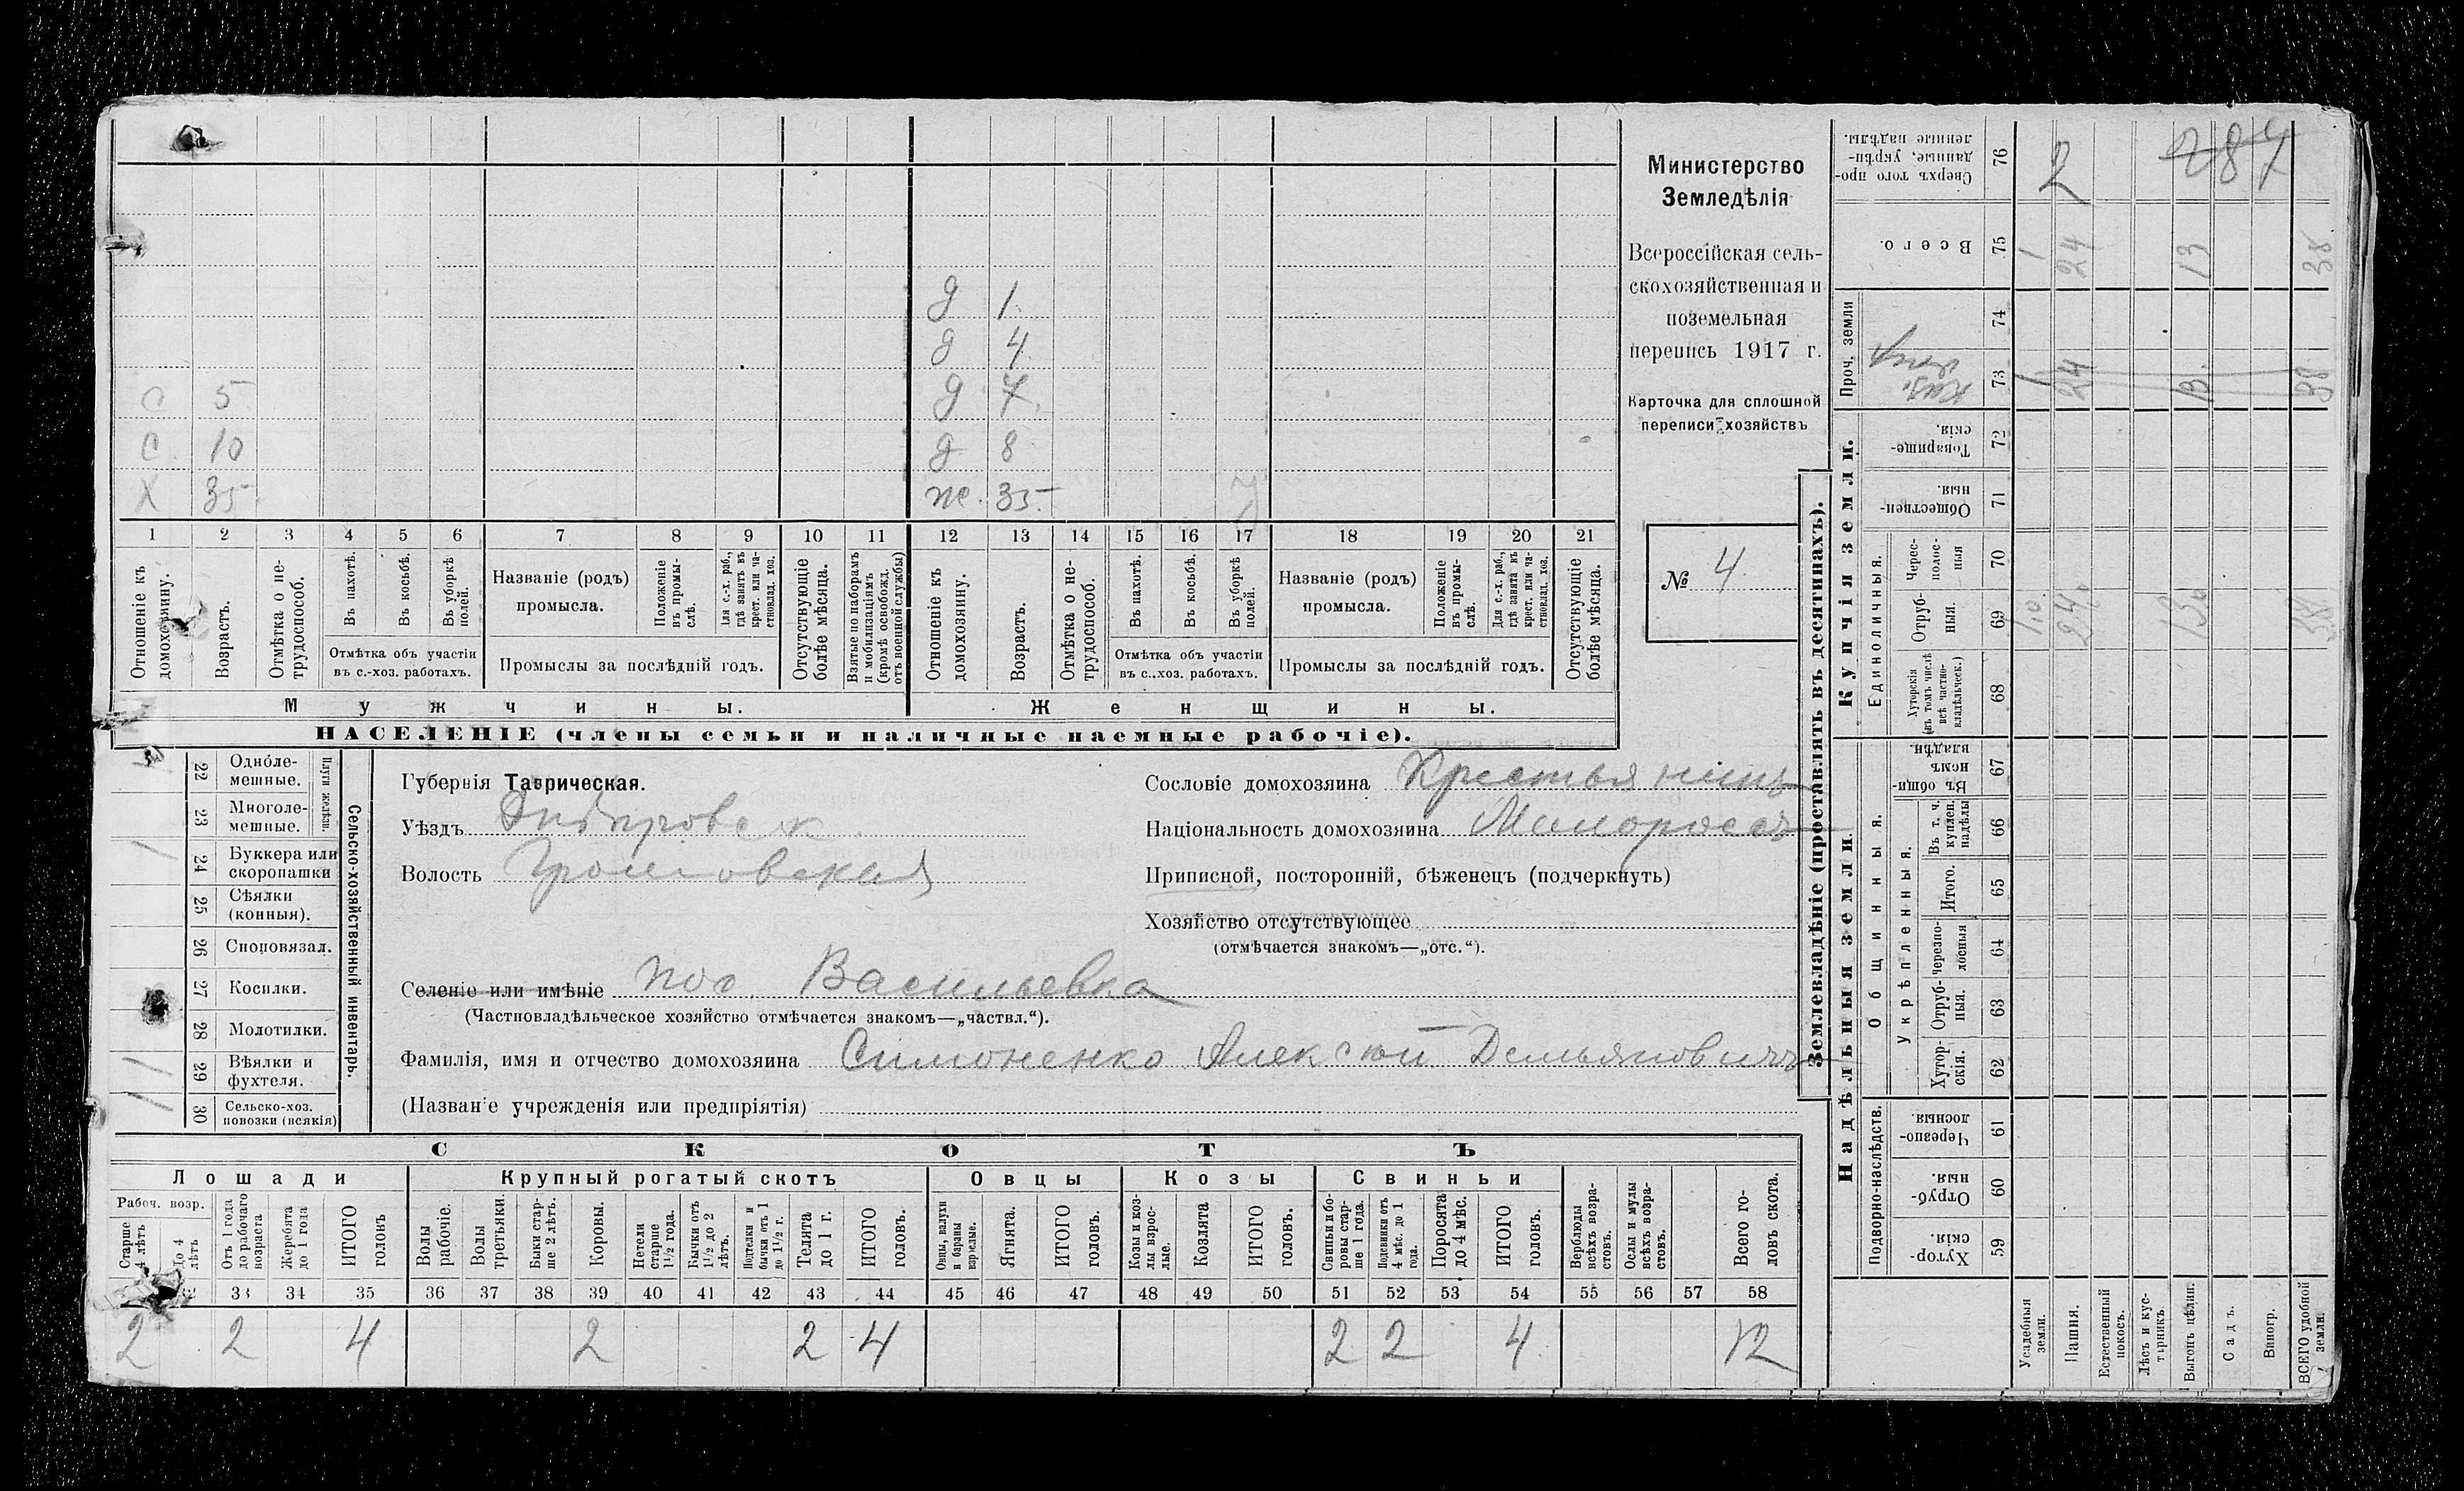 д 1
д 4
с 5 д 7
с 10 д 8
Х 35 ж. 35
1 2 3 4 5 6 7 8 9 10 11 12 13 14 15 16 17 18 19 20 21
Отношеніе къ домохозяину.
Возрастъ.
Отмѣтка о не-трудоспособ.
Въ пахотѣ.
Въ косьбѣ.
Въ уборкѣ полей.
Отмѣтка объ участіи
въ с.-хоз. работахъ.
Названіе (родъ)
промысла.
Положеніе въ промы-слѣ.
Для с.-х. раб., гдѣ занятъ въ крест. или ча-стновлад. хоз.
Промыслы за послѣдній годъ.
Отсутствующіе болѣе мѣсяца.
Взятые по наборамъ и мобилизаціямъ (кромѣ освобожд. отъ военной службы)
Отношеніе къ домохозяину.
Возрастъ.
Отмѣтка о не-трудоспособ.
Въ пахотѣ.
Въ косьбѣ.
Въ уборкѣ полей.
Отмѣтка объ участіи
въ с..хоз. работахъ.
Названіе (родъ)
промысла.
Положеніе въ промы-слѣ.
Для с.-х. раб., гдѣ занята въ крест. или ча-стновлад. хоз.
Промыслы за послѣдній годъ.
Отсутствующіе болѣе мѣсяца.
Мужчины. Женщины.
НАСЕЛЕНІЕ (члены семьи и наличные наемные рабочіе).
Министерство
Земледѣлія
Всероссійская сель-
скохозяйственная и
поземельная
перепись 1917 г.
Карточка для сплошной
переписи хозяйствъ
№ 4
22 Одноле-мешные.
23 Многоле-мешные.
Плуги желѣзн.
24 Буккера или скоропашки
25 Сѣялки (конныя).
26 Сноповязал.
27 Косилки.
28 Молотилки.
29 Вѣялки и фухтеля.
30 Сельско-хоз. повозки (всякія)
Сельско-хозяйственный инвентарь.
Губернія Таврическая.
Уѣздъ Днѣпровск
Волость Громовская
Сословіе домохозяина Крестьянинъ
Національность домохозяина Малороссъ
Приписной, посторонній, бѣженецъ (подчеркнуть)
Хозяйство отсутствующее
(отмѣчается знакомъ—„отс.“).
Селеніе или имѣніе пос. Васильевка
(Частновладѣльческое хозяйство отмѣчается знакомъ—„частвл.“).
Фамилія, имя и отчество домохозяина Симоненко Алексѣй Демьяновичъ
(Названіе учрежденія или предпріятія)
СКОТЪ
Лошади Крупный рогатый скотъ Овцы Козы Свиньи
Рабоч. возр.
Старше 4 лѣтъ
До 4 лѣтъ
Отъ 1 года до рабочаго возраста
Жеребята до 1 года
ИТОГО головъ
Волы рабочіе.
Волы третьяки.
Быки стар-ше 2 лѣтъ.
Коровы.
Нетели старше 1½ года.
Бычки отъ 1½ до 2 лѣтъ.
Подтелки и бычки отъ 1 до 1½ г.
Телята до 1 г.
ИТОГО головъ.
Овцы, валухи и бараны взрослые.
Ягнята.
ИТОГО головъ.
Козы и коз-лы взрос-лые.
Козлята
ИТОГО головъ.
Свиньи и бо-ровы стар-ше 1 года.
Подсвинки отъ 4 мѣс. до 1 года.
Поросята до 4 мѣс.
ИТОГО головъ.
Верблюды всѣхъ возра-стовъ.
Ослы и мулы всѣхъ возра-стовъ.
Всего го-ловъ скота.
32 33 34 35 36 37 38 39 40 41 42 43 44 45 46 47 48 49 50 51 52 53 54 55 56 57 58
2 2 4 2 2 4 2 2 4 12
Землевладѣніе (проставлять въ десятинахъ).
Надѣльныя земли. Купчія земли. Проч. земли
Подворно-наслѣдств.
Общинныя.
Укрѣпленныя.
Единоличныя.
Сверхъ того про-данные, укрѣп-ленные надѣлы. 76 2 287
Всего. 75 1 24 13 38
74
73 1 24 13 38
Товарище-скія. 72
Обществен-ныя. 71
Черес-полос-ныя 70
Отруб-ныя. 69 1.0 24. 13. 38
Хуторскія (въ томъ числѣ всѣ частно-владѣльческ.) 68
Въ общин-номъ владѣн. 67
Въ т. ч. куплен. надѣлы 66
Итого. 65
Черезпо-лосныя 64
Отруб-ныя. 63
Хутор-скія. 62
Черезпо-лосныя. 61
Отруб-ныя. 60
Хутор-скія. 59
Усадебныя земли.
Пашня.
Естественный покосъ.
Лѣсъ и кус-тарникъ.
Выгонъ цѣлин.
Садъ.
Виногр.
ВСЕГО удобной земли.